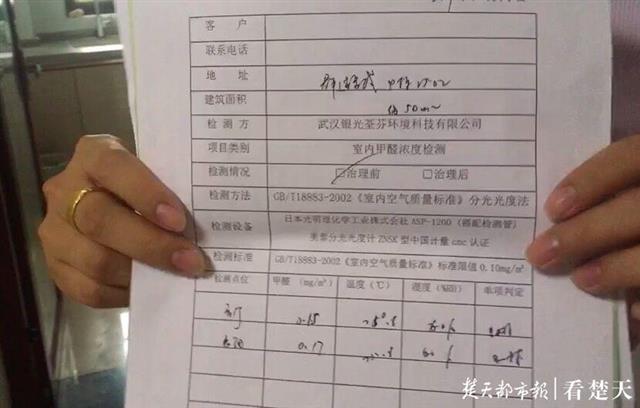 客 户
联系电话
地 址
建筑面积 约50m²
检测方 武汉银光荃芬环境科技有限公司
项目类别 室内甲醛浓度检测
检测情况 □治理前 □治理后
检测方法 GB/T18883-2002《室内空气质量标准》分光光度法
检测设备 日本光明理化学工业株式会社 ASP-1200 (搭配检测管)
美泰分光光度计ZNSK 型中国计量 cmc 认证
检测标准 GB/T18883-2002《室内空气质量标准》标准限值 0.10mg/m³
检测点位 甲醛 (mg/m³) 温度(℃) 湿度(%RH) 单项判定
0.15
0.17
楚天都市报 看楚天